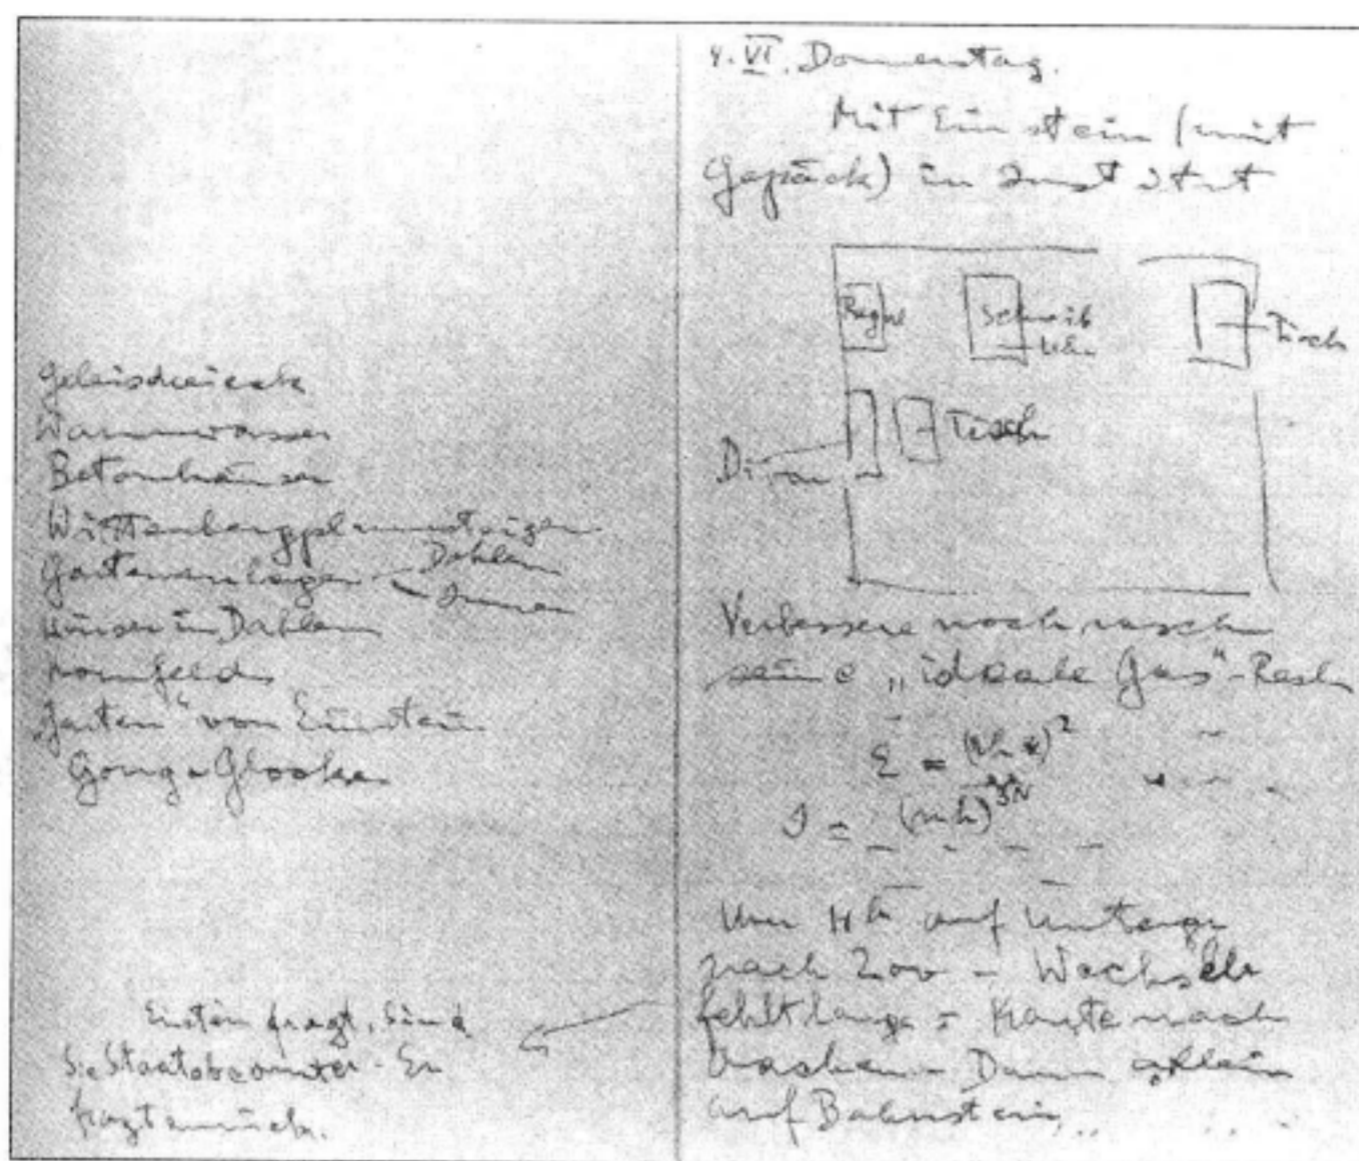 Geleisdreieck
Warmwasser
Betonhäuser
Gartenanlagen Dahlem
Häuser in Dahlem
"Garten" von Einstein
Gong = Glocke
Einstein fragt, sind
Sie Staatsbeamter - Er
fragt zurück.
4. VI. Donnerstag.
Mit Einstein (mit
Gepäck) in Institut
Schreib
Tisch
Uhr
Divan
Tisch
Verbessere noch rasch
seine "ideale Gas"-Rech
ε =
J = (nh)
Um 11h auf Unterg
nach Zoo - Wechseln
fehlt lange = Karte nach
Dann allein
auf Bahnsteig